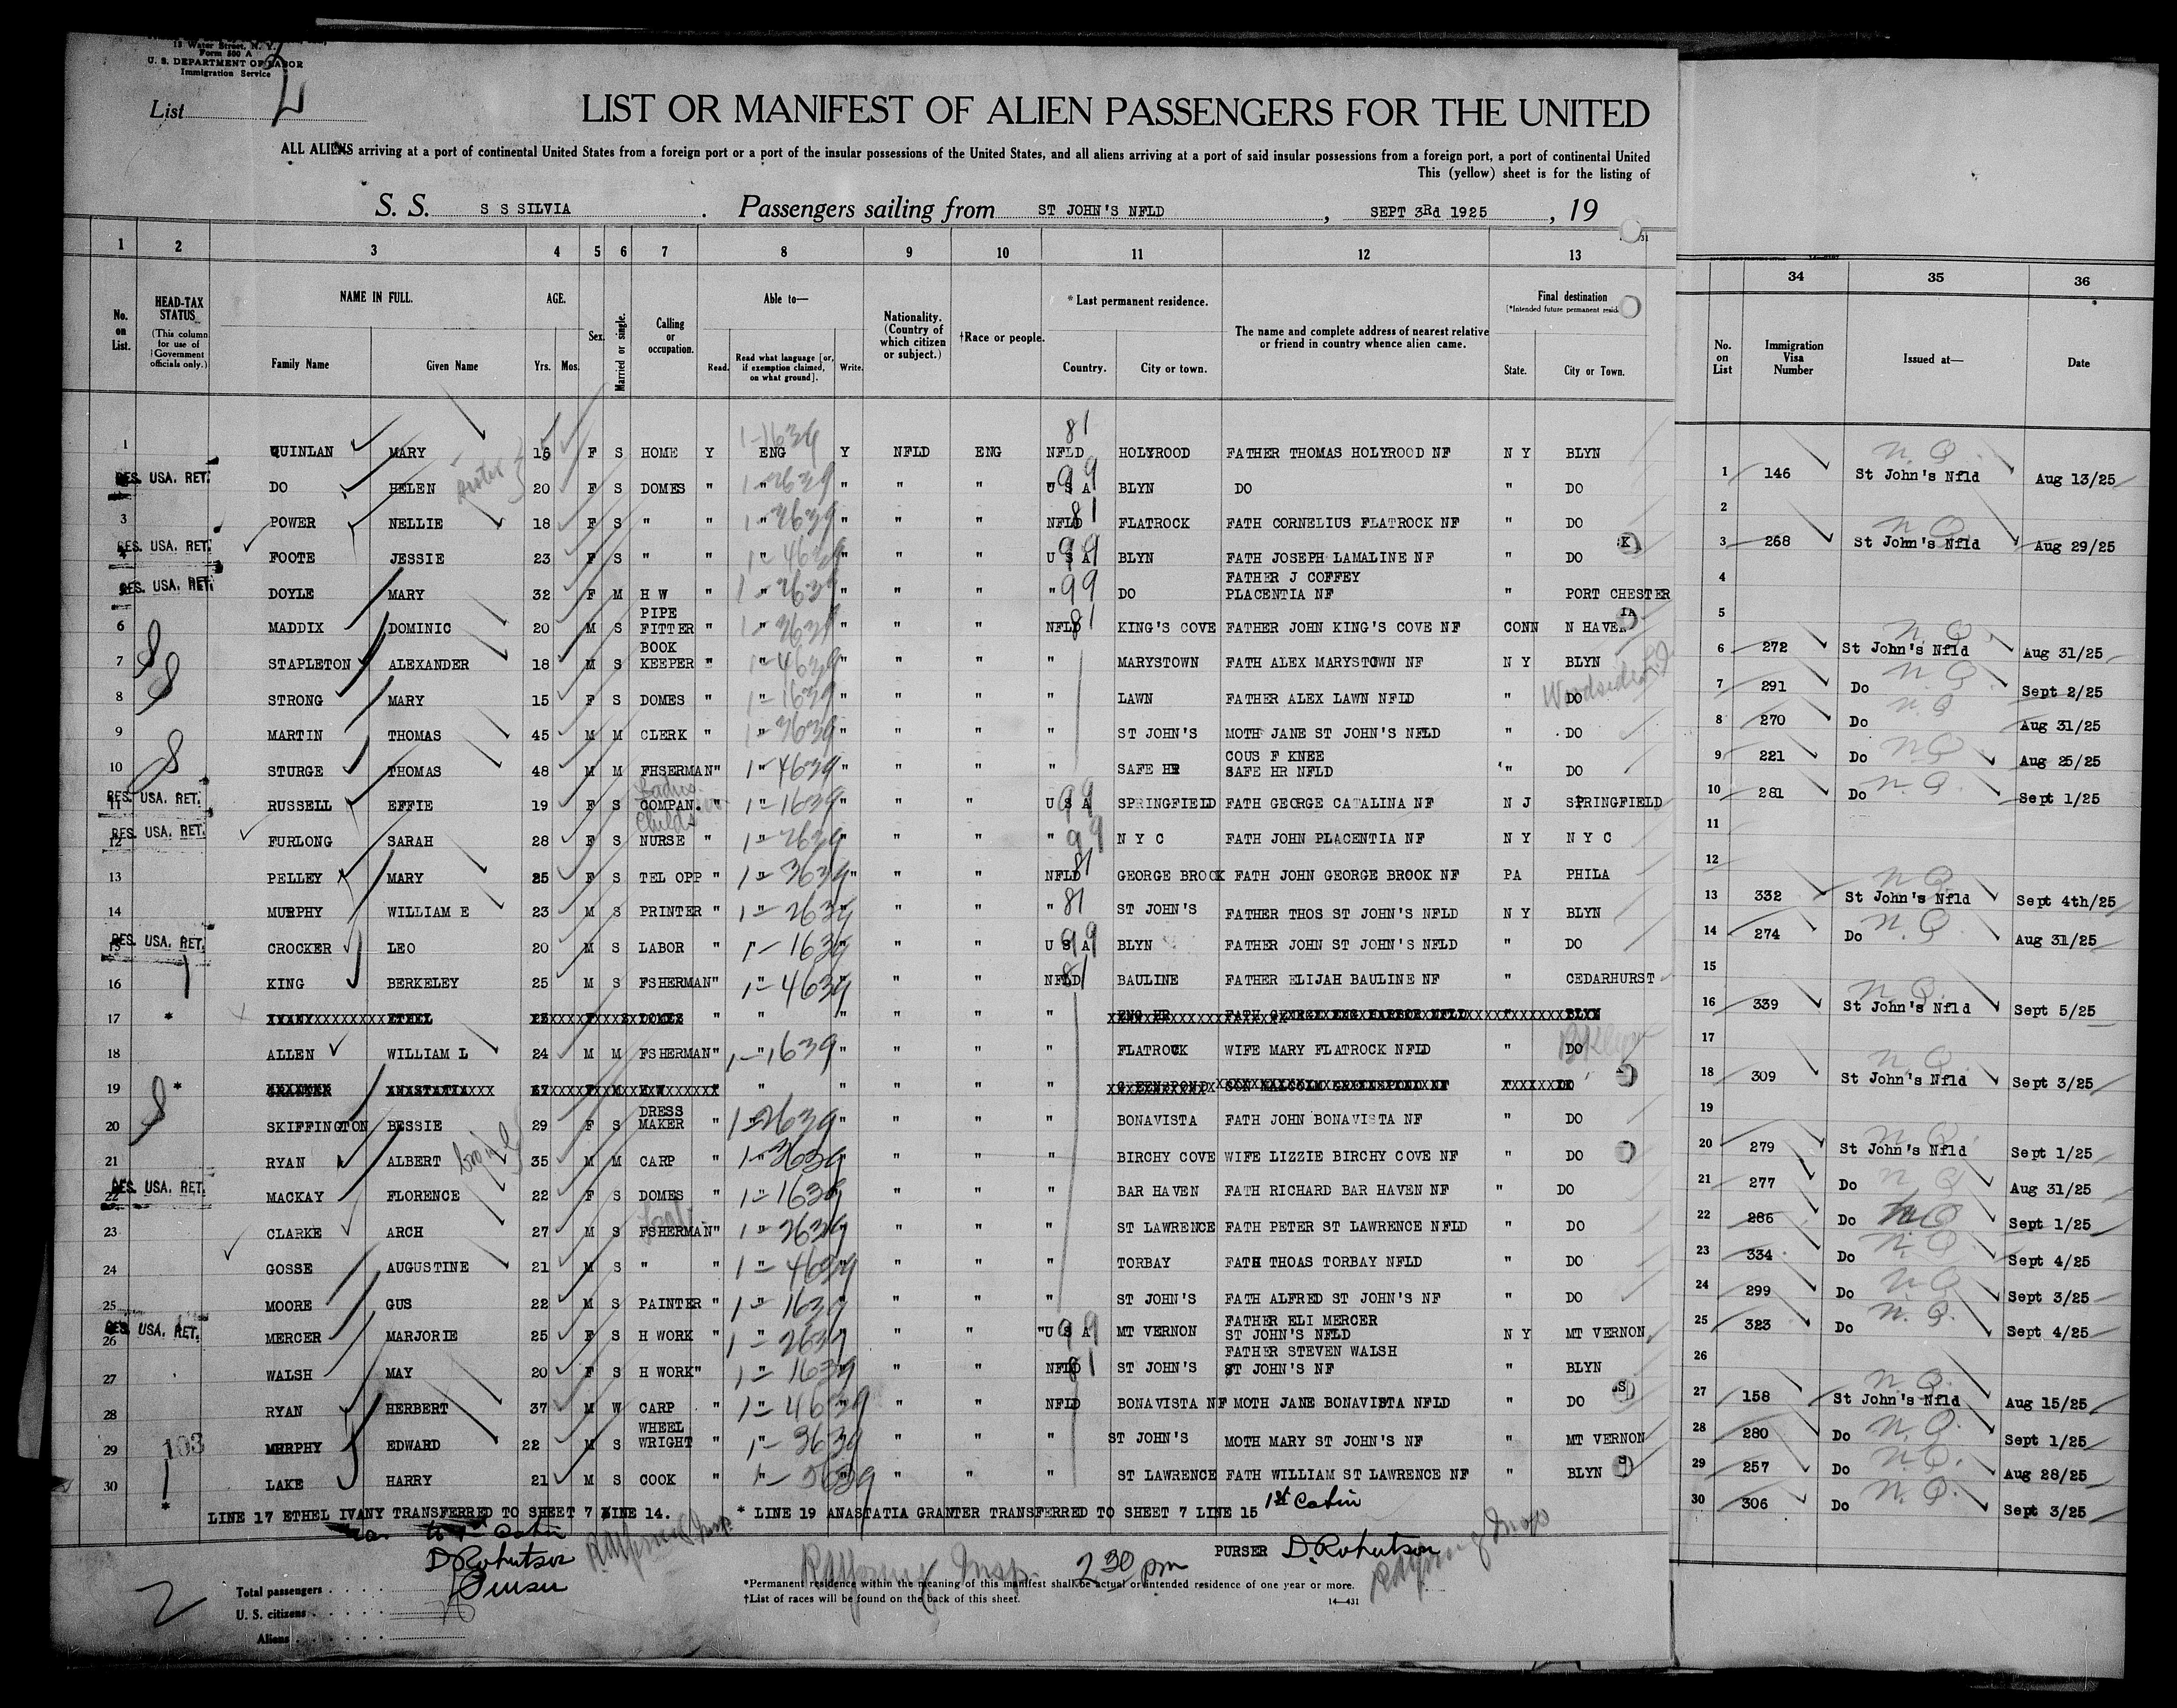 13 Water Street, N. Y.
Form 500 A
U. S. DEPARTMENT OF LABOR
Immigration Service
List 2
LIST OR MANIFEST OF ALIEN PASSENGERS FOR THE UNITED
ALL ALIENS arriving at a port of continental United States from a foreign port or a port of the insular possessions of the United States, and all aliens arriving at a port of said insular possessions from a foreign port, a port of continental United
This (yellow) sheet is for the listing of
S. S. S S SILVIA . Passengers sailing from ST JOHN'S NFLD , SEPT 3Rd 1925 , 19
1 2 3 4 5 6 7 8 9 10 11 12 13
No. on List.
HEAD-TAX STATUS (This column for use of Government officials only.)
NAME IN FULL. Family Name Given Name
AGE. Yrs. Mos.
Sex.
Married or single.
Calling or occupation.
Able to— Read. Read what language [or, if exemption claimed, on what ground]. Write.
Nationality. (Country of which citizen or subject.)
†Race or people.
* Last permanent residence. Country. City or town.
The name and complete address of nearest relative or friend in country whence alien came.
Final destination (*Intended future permanent resid State. City or Town.
34 35 36
No. on List
Immigration Visa Number
Issued at—
Date
1 QUINLAN MARY 16 F S HOME Y ENG 1-1639 Y NFLD ENG NFLD 81 HOLYROOD FATHER THOMAS HOLYROOD NF N Y BLYN
RES. USA. RET. DO HELEN sister 20 F S DOMES " " 1-2639 " " " U S A 99 BLYN DO " DO
3 POWER NELLIE 18 F S " " " 1-3639 " " " NFLD 81 FLATROCK FATH CORNELIUS FLATROCK NF " DO
4 RES. USA. RET. FOOTE JESSIE 23 F S " " " 1-4639 " " " U S A 99 BLYN FATH JOSEPH LAMALINE NF " DO
RES. USA. RET. DOYLE MARY 32 F M H W " " 1-2639 " " " " 99 DO FATHER J COFFEY PLACENTIA NF " PORT CHESTER
6 MADDIX DOMINIC 20 M S PIPE FITTER " " 1-3639 " " " NFLD 81 KING'S COVE FATHER JOHN KING'S COVE NF CONN N HAVEN
7 STAPLETON ALEXANDER 18 M S BOOK KEEPER " " 1-4639 " " " " MARYSTOWN FATH ALEX MARYSTOWN NF N Y BLYN
8 STRONG MARY 15 F S DOMES " " 1-1639 " " " " LAWN FATHER ALEX LAWN NFLD " DO Woodside L.I.
9 MARTIN THOMAS 45 M M CLERK " " 1-3639 " " " " ST JOHN'S MOTH JANE ST JOHN'S NFLD " DO
10 STURGE THOMAS 48 M M FHSERMAN " " 1-4639 " " " " SAFE HR COUS F KNEE SAFE HR NFLD " DO
11 RES. USA. RET. RUSSELL EFFIE 19 F S Ladies COMPAN. " " 1-1639 " " " U S A 99 SPRINGFIELD FATH GEORGE CATALINA NF N J SPRINGFIELD
12 RES. USA. RET. FURLONG SARAH 28 F S Childs NURSE " " 1-2639 " " " " 99 N Y C FATH JOHN PLACENTIA NF N Y N Y C
13 PELLEY MARY 25 F S TEL OPP " " 1-3639 " " " NFLD 81 GEORGE BROOK FATH JOHN GEORGE BROOK NF PA PHILA
14 MURPHY WILLIAM E 23 M S PRINTER " " 1-2639 " " " " 81 ST JOHN'S FATHER THOS ST JOHN'S NFLD N Y BLYN
15 RES. USA. RET. CROCKER LEO 20 M S LABOR " " 1-1639 " " " U S A 99 BLYN FATHER JOHN ST JOHN'S NFLD " DO
16 KING BERKELEY 25 M S FSHERMAN " " 1-4639 " " " NFLD 81 BAULINE FATHER ELIJAH BAULINE NF " CEDARHURST
17 * IVANY ETHEL F S DOMES " " " " " " ENG HR FATH GEORGE ENG HARBOR NFLD " BLYN
18 ALLEN WILLIAM L 24 M M FSHERMAN " " 1-1639 " " " " FLATROCK WIFE MARY FLATROCK NFLD " DO Bklyn
19 * GRANTER ANASTATIA 67 F M H W " " " " " " GREENSPOND SON MALCOLM GREENSPOND NF DO
20 SKIFFINGTON BESSIE 29 F S DRESS MAKER " " 1-2639 " " " " BONAVISTA FATH JOHN BONAVISTA NF " DO
21 RYAN ALBERT 35 M M CARP " " 1-3639 " " " " BIRCHY COVE WIFE LIZZIE BIRCHY COVE NF " DO
22 RES. USA. RET. MACKAY FLORENCE 22 F S DOMES " " 1-1639 " " " " BAR HAVEN FATH RICHARD BAR HAVEN NF " DO
23 CLARKE ARCH 27 M S FSHERMAN " " 1-2639 " " " " ST LAWRENCE FATH PETER ST LAWRENCE NFLD " DO
24 GOSSE AUGUSTINE 21 M S " " " 1-4639 " " " " TORBAY FATH THOAS TORBAY NFLD " DO
25 MOORE GUS 22 M S PAINTER " " 1-1639 " " " " ST JOHN'S FATH ALFRED ST JOHN'S NF " DO
26 RES. USA. RET. MERCER MARJORIE 25 F S H WORK " " 1-2639 " " " "U S A 99 MT VERNON FATHER ELI MERCER ST JOHN'S NFLD N Y MT VERNON
27 WALSH MAY 20 F S H WORK " " 1-1639 " " " NFLD 81 ST JOHN'S FATHER STEVEN WALSH ST JOHN'S NF " BLYN
28 RYAN HERBERT 37 M W CARP " " 1-4639 " " " NFLD BONAVISTA NF MOTH JANE BONAVISTA NFLD " DO
29 103 MURPHY EDWARD 22 M S WHEEL WRIGHT " " 1-3639 " " " " ST JOHN'S MOTH MARY ST JOHN'S NF " MT VERNON
30 LAKE HARRY 21 M S COOK " " 1-5639 " " " " ST LAWRENCE FATH WILLIAM ST LAWRENCE NF " BLYN
* LINE 17 ETHEL IVANY TRANSFERRED TO SHEET 7 LINE 14. * LINE 19 ANASTATIA GRANTER TRANSFERRED TO SHEET 7 LINE 15 1st Cabin
to 1st Cabin
D. Robertson
Purser
PURSER D. Robertson
Insp. 2 30 pm
2
Total passengers
U. S. citizens
Aliens
*Permanent residence within the meaning of this manifest shall be actual or intended residence of one year or more.
†List of races will be found on the back of this sheet.
14—431
1 146 N.Q. St John's Nfld Aug 13/25
2
3 268 N.Q. St John's Nfld Aug 29/25
4
5
6 272 N.Q. St John's Nfld Aug 31/25
7 291 Do N.Q. Sept 2/25
8 270 Do N.Q. Aug 31/25
9 221 Do N.Q. Aug 25/25
10 281 Do N.Q. Sept 1/25
11
12
13 332 N.Q. St John's Nfld Sept 4th/25
14 274 Do N.Q. Aug 31/25
15
16 339 N.Q. St John's Nfld Sept 5/25
17
18 309 N.Q. St John's Nfld Sept 3/25
19
20 279 N.Q. St John's Nfld Sept 1/25
21 277 Do N.Q. Aug 31/25
22 286 Do N.Q. Sept 1/25
23 334 Do N.Q. Sept 4/25
24 299 Do N.Q. Sept 3/25
25 323 Do N.Q. Sept 4/25
26
27 158 N.Q. St John's Nfld Aug 15/25
28 280 Do N.Q. Sept 1/25
29 257 Do N.Q. Aug 28/25
30 306 Do N.Q. Sept 3/25